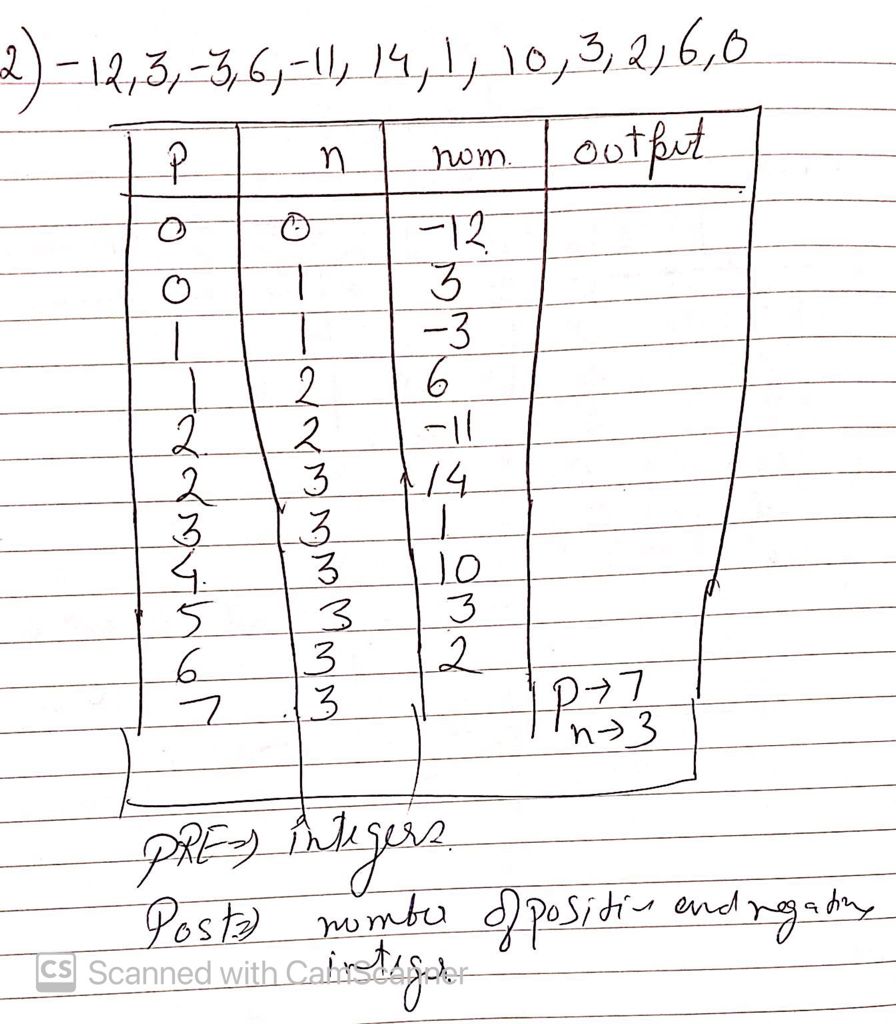 2) -12, 3, -3, 6, -11, 14, 1, 10, 3, 2, 6, 0
p n nom. output
0 0 -12
0 1 3
1 1 -3
1 2 6
2 2 -11
2 3 14
3 3 1
4 3 10
5 3 3
6 3 2
7 3 p→7
n→3
PRE⇒ integers.
Post⇒ nomber of positive and negative
integer
CS Scanned with CamScanner